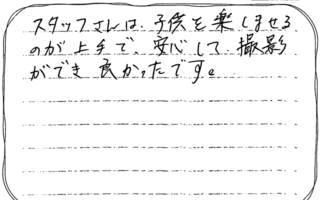 スタッフさんは、子供を楽しませる
のが上手で、安心して撮影
ができ良かったです。